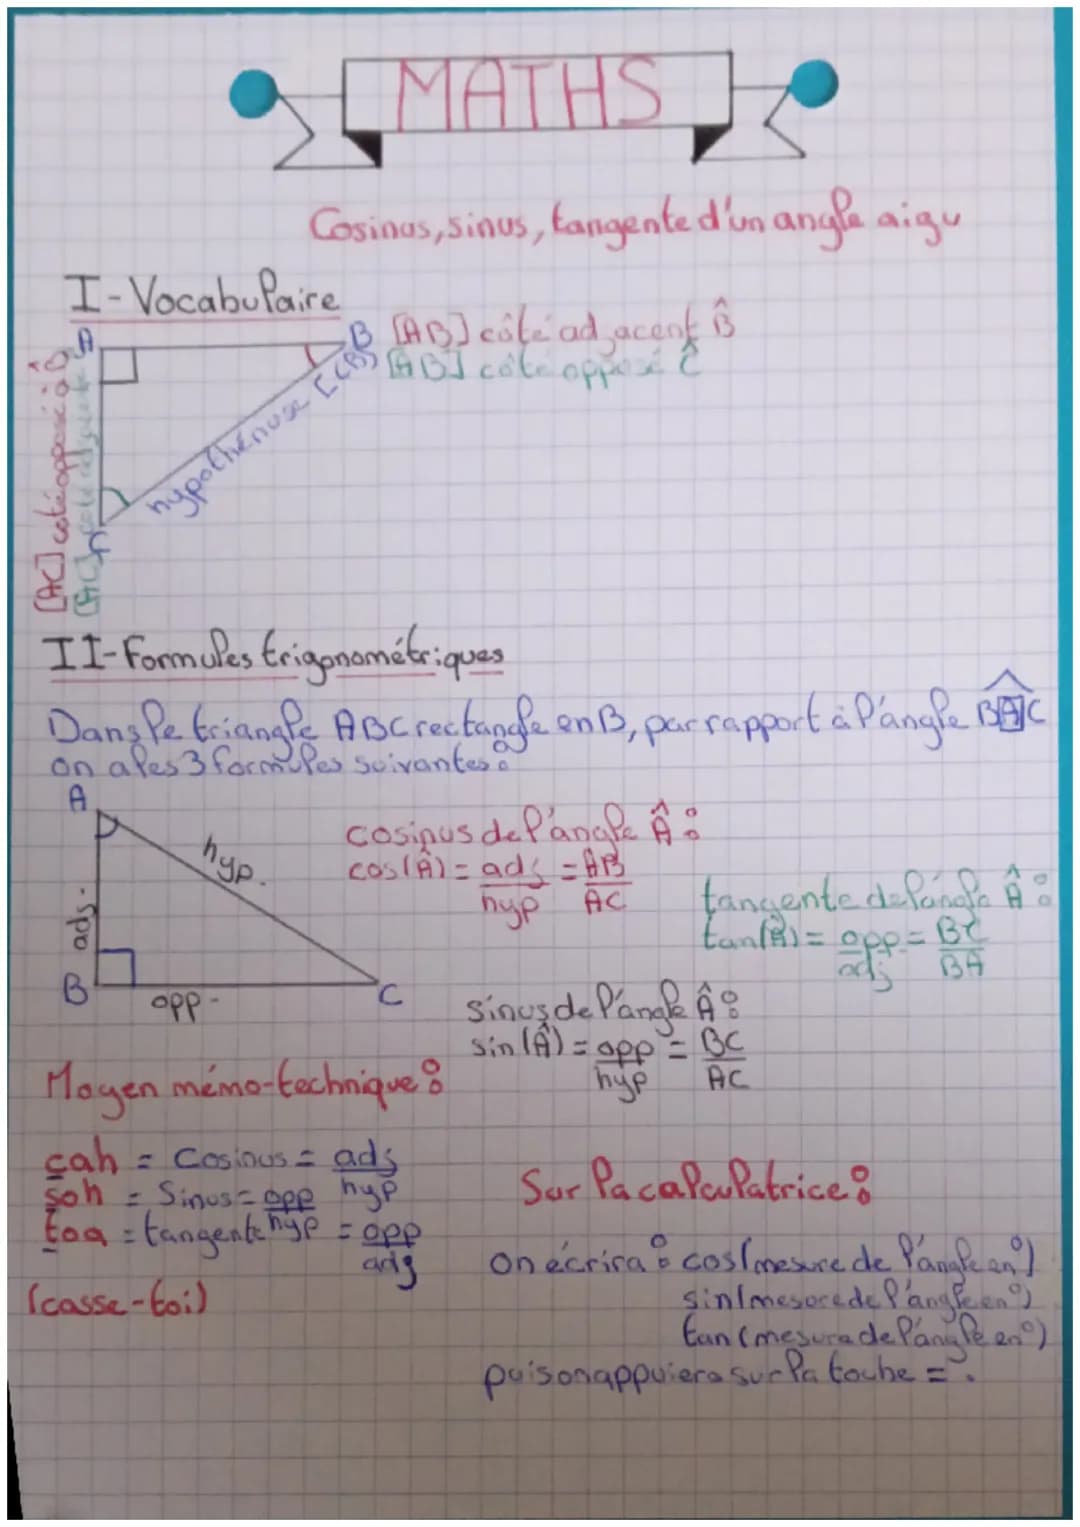 MATHS
Cosinus, sinus, tangente d'un angle aigu
I - Vocabulaire
A
B
[AB] côté adjacent B̂
[AB] côté opposé Ĉ
hypothénuse [CB]
[AC] côté opposé à B̂
[AC] côté adjacent
C
II - Formules trigonométriques
Dans le triangle ABC rectangle en B, par rapport à l'angle BAC
on a les 3 formules suivantes :
A
hyp.
adj.
B
opp.
C
cosinus de l'angle Â :
cos(Â) = adj/hyp = AB/AC
tangente de l'angle Â :
tan(Â) = opp/adj = BC/BA
sinus de l'angle Â :
sin(Â) = opp/hyp = BC/AC
Moyen mémo-technique :
cah = Cosinus = adj/hyp
soh = Sinus = opp/hyp
toa = tangente = opp/adj
(casse-toi)
Sur la calculatrice :
on écrira : cos(mesure de l'angle en °)
sin(mesure de l'angle en °)
tan(mesure de l'angle en °)
puis on appuiera sur la touche = .